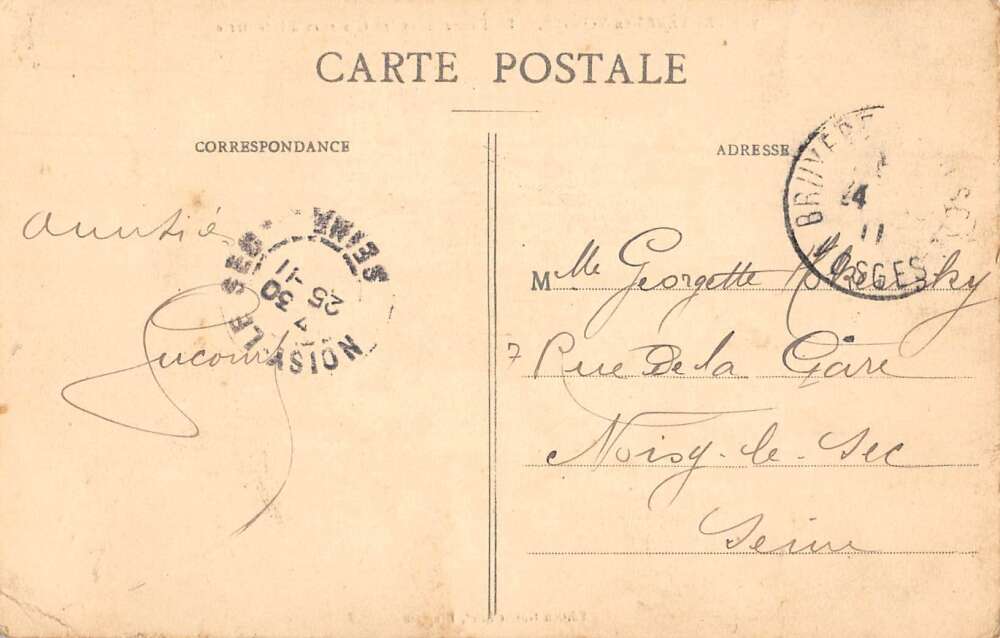 CARTE POSTALE
CORRESPONDANCE
ADRESSE
BRUYERE
24
11
VOSGES
NOISY-LE-SEC
SEINE
7 30
25-11
Mlle Georgette
7 Rue De la Gare
Noisy-le-Sec
Seine